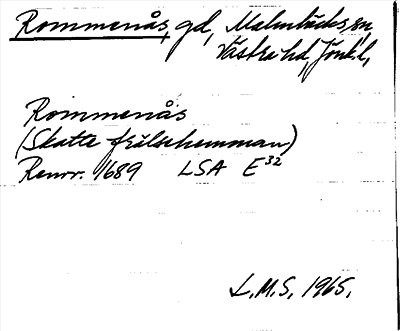 Rommenås, gd, Malmbäcks sn
Västra hd, Jönk. l,
Rommenås
(Skatte frälsehemman)
Renov. 1689 LSA E32
L.M.S. 1965.